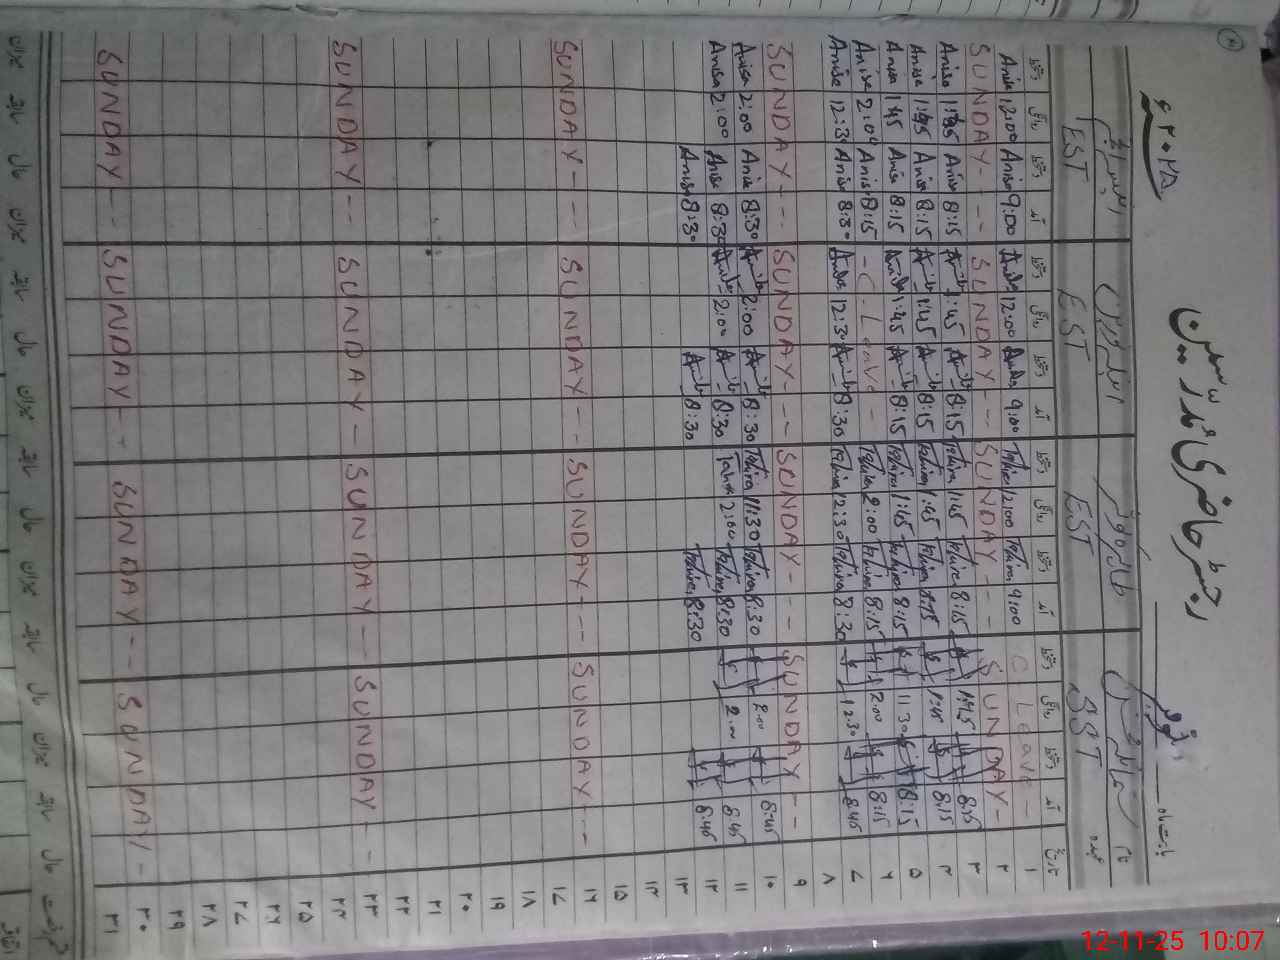 ۲۰۲۵ء
رجسٹر حاضری مدرسین بابت ماہ نومبر
نام
عہدہ EST EST EST
تاریخ آمد دستخط روانگی دستخط آمد دستخط روانگی دستخط آمد دستخط روانگی دستخط آمد دستخط روانگی دستخط
۱ C Leave - 9:00 Tahira 12:00 Tahira 9:00 Anila 12:00 Anila 9:00 Anisa 12:00 Anisa
۲ SUNDAY - SUNDAY - - - SUNDAY - - - SUNDAY - - -
۳ 8:15 1:45 8:15 Tahira 1:45 Tahira 8:15 1:45 8:15 Anisa 1:45 Anisa
۴ 8:15 1:45 8:15 Tahira 1:45 Tahira 8:15 1:45 8:15 Anisa 1:45 Anisa
۵ 8:15 11:30 8:15 Tahira 1:45 Tahira 8:15 1:45 8:15 Anisa 1:45 Anisa
۶ 8:15 2:00 8:15 Tahira 2:00 Tahira - C. Leave - 8:15 Anisa 2:00 Anisa
۷ 8:45 12:30 8:30 Tahira 12:30 Tahira 8:30 12:30 Anila 8:30 Anisa 12:30 Anisa
۸
۹ SUNDAY - - SUNDAY - - - SUNDAY - - - SUNDAY - - -
۱۰ 8:45 2:00 8:30 Tahira 11:30 Tahira 8:30 2:00 8:30 Anisa 2:00 Anisa
۱۱ 8:45 2:00 8:30 Tahira 2:00 Tahira 8:30 2:00 8:30 Anisa 2:00 Anisa
۱۲ 8:45 8:30 Tahira 8:30 8:30 Anisa
۱۳
۱۴
۱۵
۱۶ SUNDAY - - SUNDAY - - - SUNDAY - - SUNDAY - - -
۱۷
۱۸
۱۹
۲۰
۲۱
۲۲
۲۳ SUNDAY - - SUNDAY - - SUNDAY - SUNDAY - - -
۲۴
۲۵
۲۶
۲۷
۲۸
۲۹
۳۰ SUNDAY - SUNDAY - - SUNDAY - - SUNDAY - -
۳۱
حال سابقہ میزان حال سابقہ میزان حال سابقہ میزان حال سابقہ میزان
12-11-25 10:07